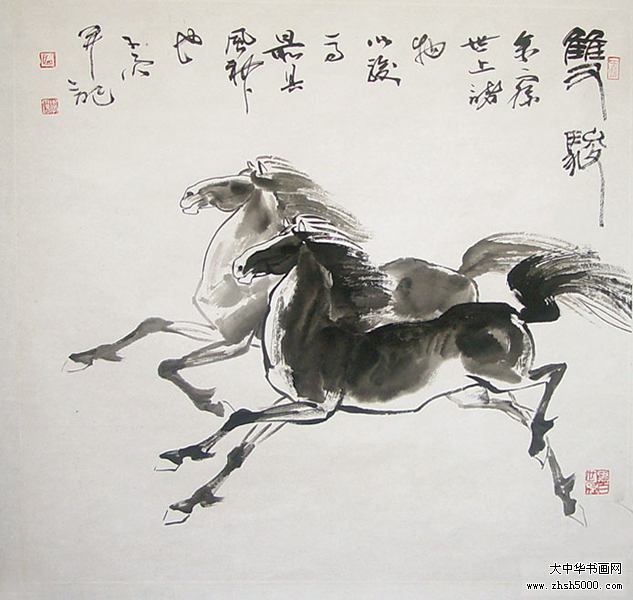 雙駿
余察
世上諸
物
以駿
馬
最具
風神
也
大中华书画网
www.zhsh5000.com